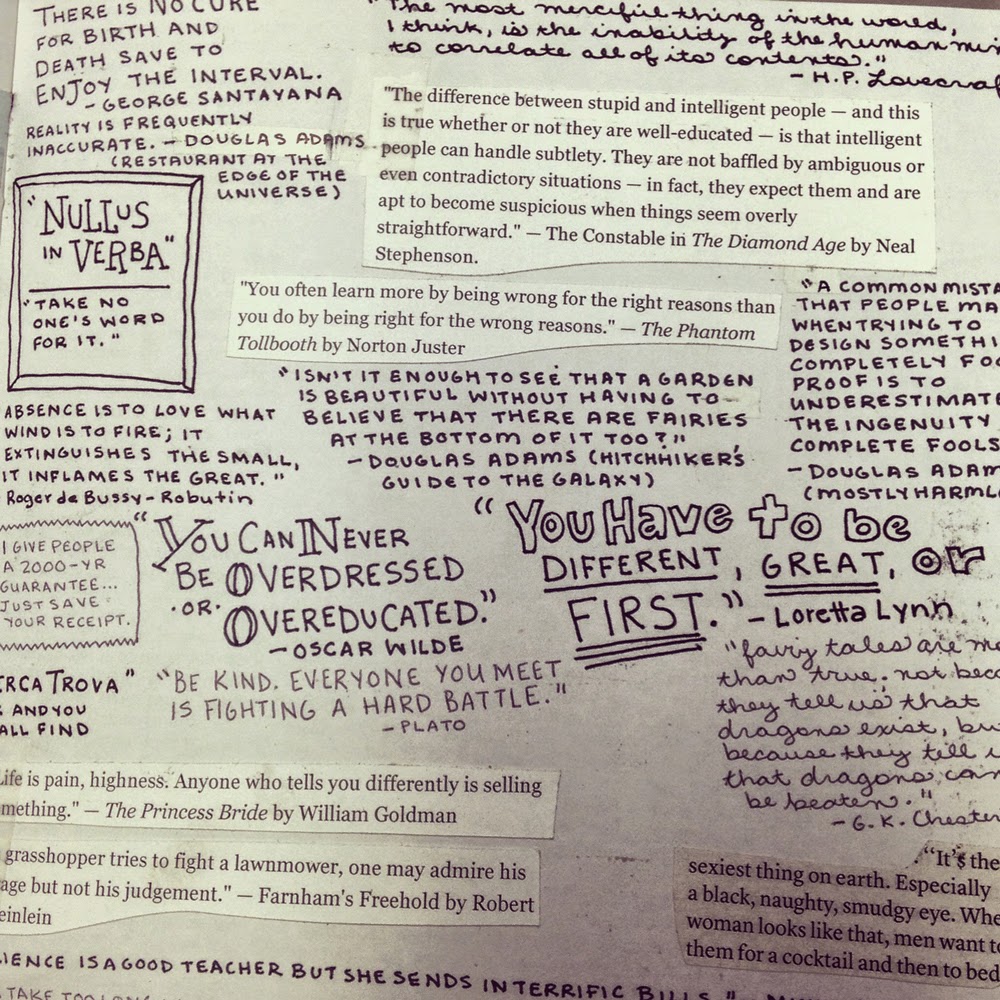 THERE IS NO CURE
FOR BIRTH AND
DEATH SAVE TO
ENJOY THE INTERVAL.
- GEORGE SANTAYANA
REALITY IS FREQUENTLY
INACCURATE. - DOUGLAS ADAMS
(RESTAURANT AT THE
EDGE OF THE
UNIVERSE)
"The most merciful thing in the world,
I think, is the inability of the human min
to correlate all of its contents."
- H.P. Lovecraf
"The difference between stupid and intelligent people — and this
is true whether or not they are well-educated — is that intelligent
people can handle subtlety. They are not baffled by ambiguous or
even contradictory situations — in fact, they expect them and are
apt to become suspicious when things seem overly
straightforward." — The Constable in The Diamond Age by Neal
Stephenson.
"NULLUS
IN VERBA"
"TAKE NO
ONE'S WORD
FOR IT."
"You often learn more by being wrong for the right reasons than
you do by being right for the wrong reasons." — The Phantom
Tollbooth by Norton Juster
"A COMMON MISTA
THAT PEOPLE MA
WHEN TRYING TO
DESIGN SOMETHI
COMPLETELY FOO
PROOF IS TO
UNDERESTIMATE
THE INGENUITY
COMPLETE FOOLS
- DOUGLAS ADAM
(MOSTLY HARML
"ISN'T IT ENOUGH TO SEE THAT A GARDEN
IS BEAUTIFUL WITHOUT HAVING TO
BELIEVE THAT THERE ARE FAIRIES
AT THE BOTTOM OF IT TOO?"
- DOUGLAS ADAMS (HITCHHIKER'S
GUIDE TO THE GALAXY)
ABSENCE IS TO LOVE WHAT
WIND IS TO FIRE; IT
EXTINGUISHES THE SMALL,
IT INFLAMES THE GREAT."
Roger de Bussy-Robutin
I GIVE PEOPLE
A 2000-YR
GUARANTEE...
JUST SAVE
YOUR RECEIPT.
"YOU CAN NEVER
BE OVERDRESSED
·OR·
OVEREDUCATED."
- OSCAR WILDE
"You Have to be
DIFFERENT, GREAT, or
FIRST." - Loretta Lynn
ERCA TROVA"
AND YOU
ALL FIND
"BE KIND. EVERYONE YOU MEET
IS FIGHTING A HARD BATTLE."
- PLATO
"fairy tales are mo
than true: not beca
they tell us that
dragons exist, bu
because they tell u
that dragons can
be beaten."
- G.K. Chester
Life is pain, highness. Anyone who tells you differently is selling
mething." — The Princess Bride by William Goldman
grasshopper tries to fight a lawnmower, one may admire his
age but not his judgement." — Farnham's Freehold by Robert
einlein
"It's the
sexiest thing on earth. Especially
a black, naughty, smudgy eye. Whe
woman looks like that, men want to
them for a cocktail and then to bed
IENCE IS A GOOD TEACHER BUT SHE SENDS IN TERRIFIC BILLS."
TAKE TOO LONG